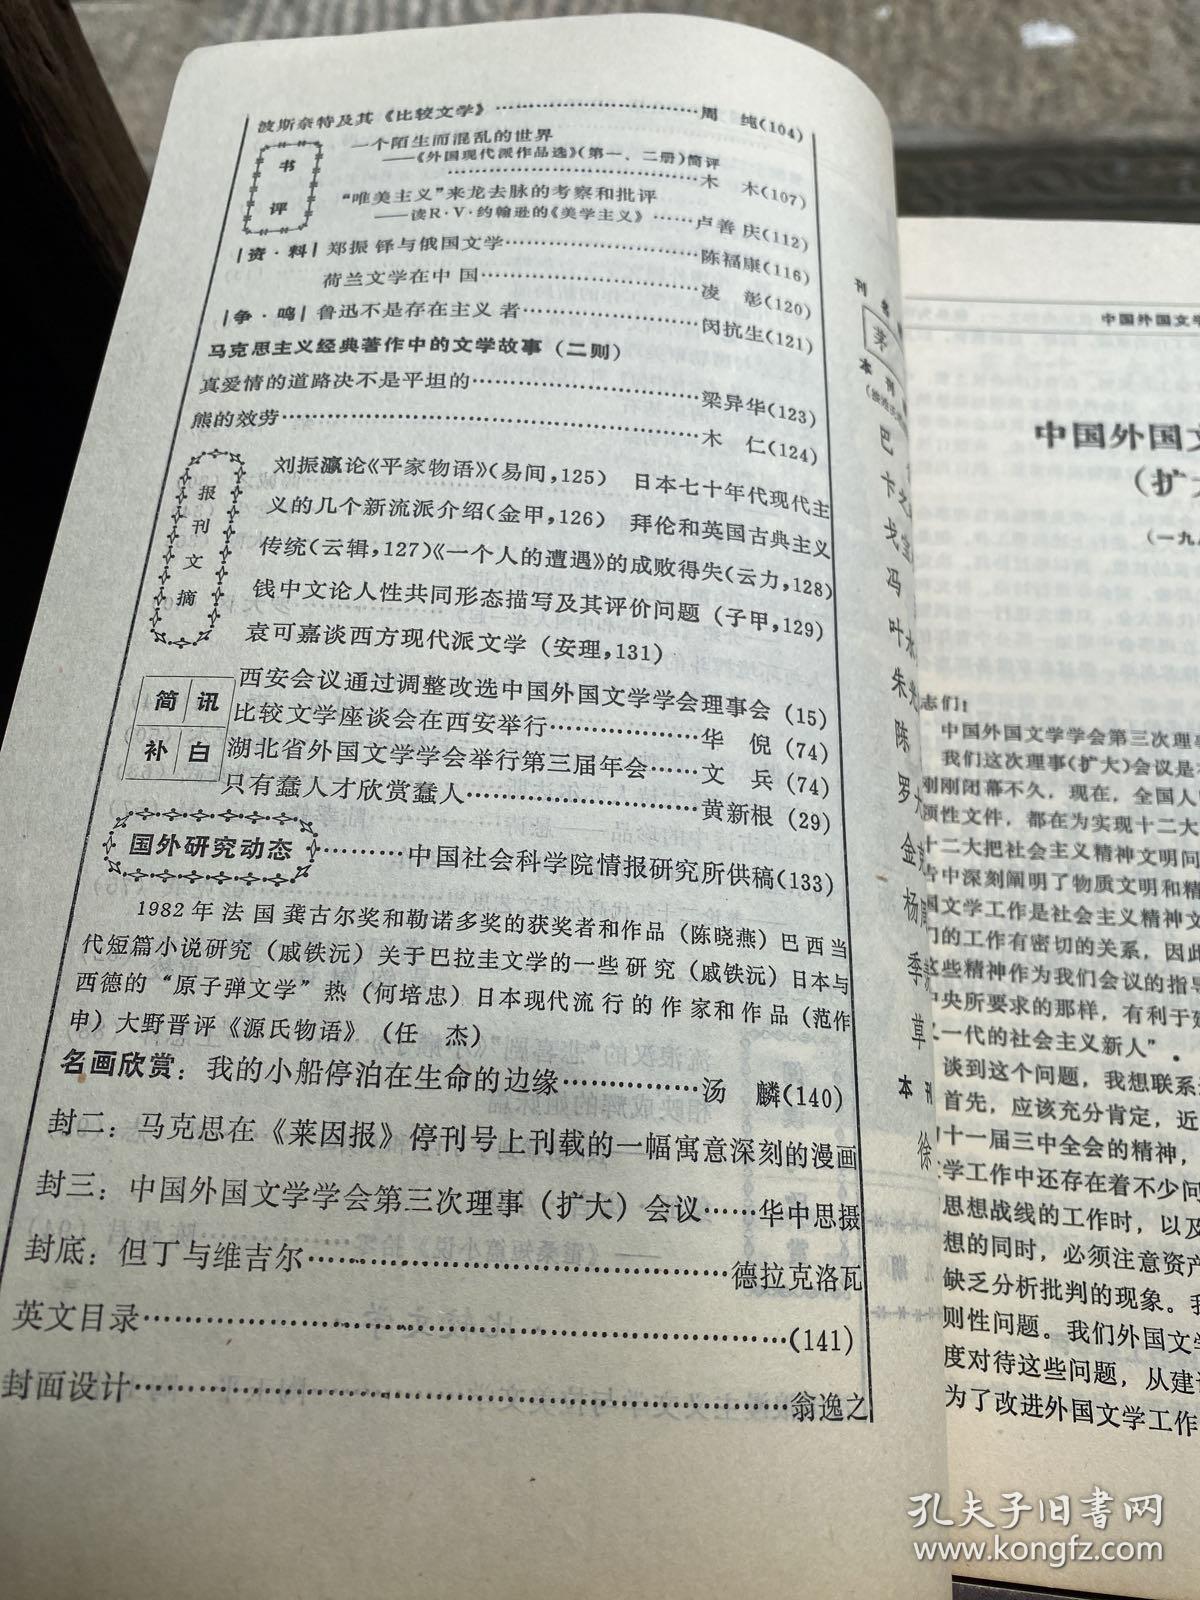 波斯奈特及其《比较文学》…………………………周　纯(104)
书评
一个陌生而混乱的世界
——《外国现代派作品选》(第一、二册)简评
…………………………木　木(107)
“唯美主义”来龙去脉的考察和批评
——读R·V·约翰逊的《美学主义》……卢善庆(112)
|资·料| 郑振铎与俄国文学…………………………陈福康(116)
荷兰文学在中国…………………………凌　彰(120)
|争·鸣| 鲁迅不是存在主义者…………………………闵抗生(121)
马克思主义经典著作中的文学故事（二则）
真爱情的道路决不是平坦的…………………………梁异华(123)
熊的效劳…………………………木　仁(124)
报刊文摘
刘振瀛论《平家物语》(易间,125)　日本七十年代现代主
义的几个新流派介绍(金甲,126)　拜伦和英国古典主义
传统(云辑,127)《一个人的遭遇》的成败得失(云力,128)
钱中文论人性共同形态描写及其评价问题 (子甲,129)
袁可嘉谈西方现代派文学 (安理,131)
简讯
补白
西安会议通过调整改选中国外国文学学会理事会 (15)
比较文学座谈会在西安举行………………华　倪 (74)
湖北省外国文学学会举行第三届年会……文　兵 (74)
只有蠢人才欣赏蠢人…………………………黄新根 (29)
国外研究动态………中国社会科学院情报研究所供稿(133)
1982年法国龚古尔奖和勒诺多奖的获奖者和作品（陈晓燕）巴西当
代短篇小说研究（戚铁沅）关于巴拉圭文学的一些研究（戚铁沅）日本与
西德的“原子弹文学”热（何培忠）日本现代流行的作家和作品（范作
申）大野晋评《源氏物语》（任　杰）
名画欣赏：我的小船停泊在生命的边缘…………汤　麟(140)
封二：马克思在《莱因报》停刊号上刊载的一幅寓意深刻的漫画
封三：中国外国文学学会第三次理事（扩大）会议……华中思摄
封底：但丁与维吉尔…………………………德拉克洛瓦
英文目录…………………………(141)
封面设计…………………………翁逸之
刊名
茅
本刊
巴
卞之
戈宝
冯
叶水
朱光
陈
罗大
金
杨
季
草
本刊
徐
中国外国文学
中国外国文
（扩
（一九
志们！
中国外国文学学会第三次理事
我们这次理事(扩大)会议是
刚刚闭幕不久，现在，全国人
领性文件，都在为实现十二大
十二大把社会主义精神文明问
告中深刻阐明了物质文明和精
国文学工作是社会主义精神文
们的工作有密切的关系，因此
这些精神作为我们会议的指导
中央所要求的那样，有利于
一代的社会主义新人”．
谈到这个问题，我想联系
首先，应该充分肯定，近
十一届三中全会的精神，
学工作中还存在着不少问
思想战线的工作时，以及
想的同时，必须注意资产
缺乏分析批判的现象。我
则性问题。我们外国文学
度对待这些问题，从建设
为了改进外国文学工作
孔夫子旧书网
www.kongfz.com